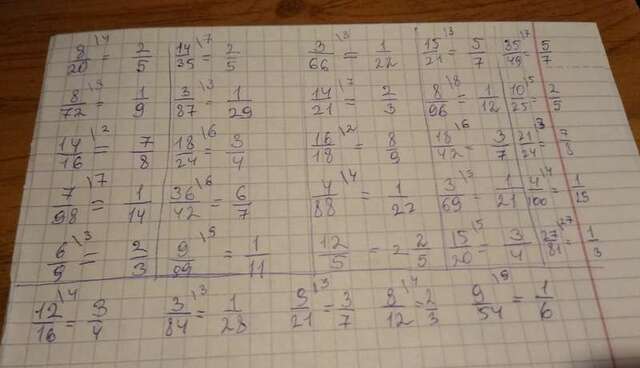 8/20 \4 = 2/5 14/35 \7 = 2/5 3/66 \3 = 1/22 15/21 \3 = 5/7 35/49 \7 = 5/7
8/72 = 1/9 3/87 \3 = 1/29 14/21 \7 = 2/3 8/96 \8 = 1/12 10/25 \5 = 2/5
14/16 \2 = 7/8 18/24 \6 = 3/4 16/18 \2 = 8/9 18/42 \6 = 3/7 21/24 \3 = 7/8
7/98 \7 = 1/14 36/42 \6 = 6/7 4/88 \4 = 1/22 3/69 \3 = 1/21 4/100 \4 = 1/25
6/9 \3 = 2/3 9/99 \9 = 1/11 12/5 = 2 2/5 15/20 \5 = 3/4 27/81 \27 = 1/3
12/16 \4 = 3/4 3/84 \3 = 1/28 9/21 \3 = 3/7 8/12 \4 = 2/3 9/54 \9 = 1/6